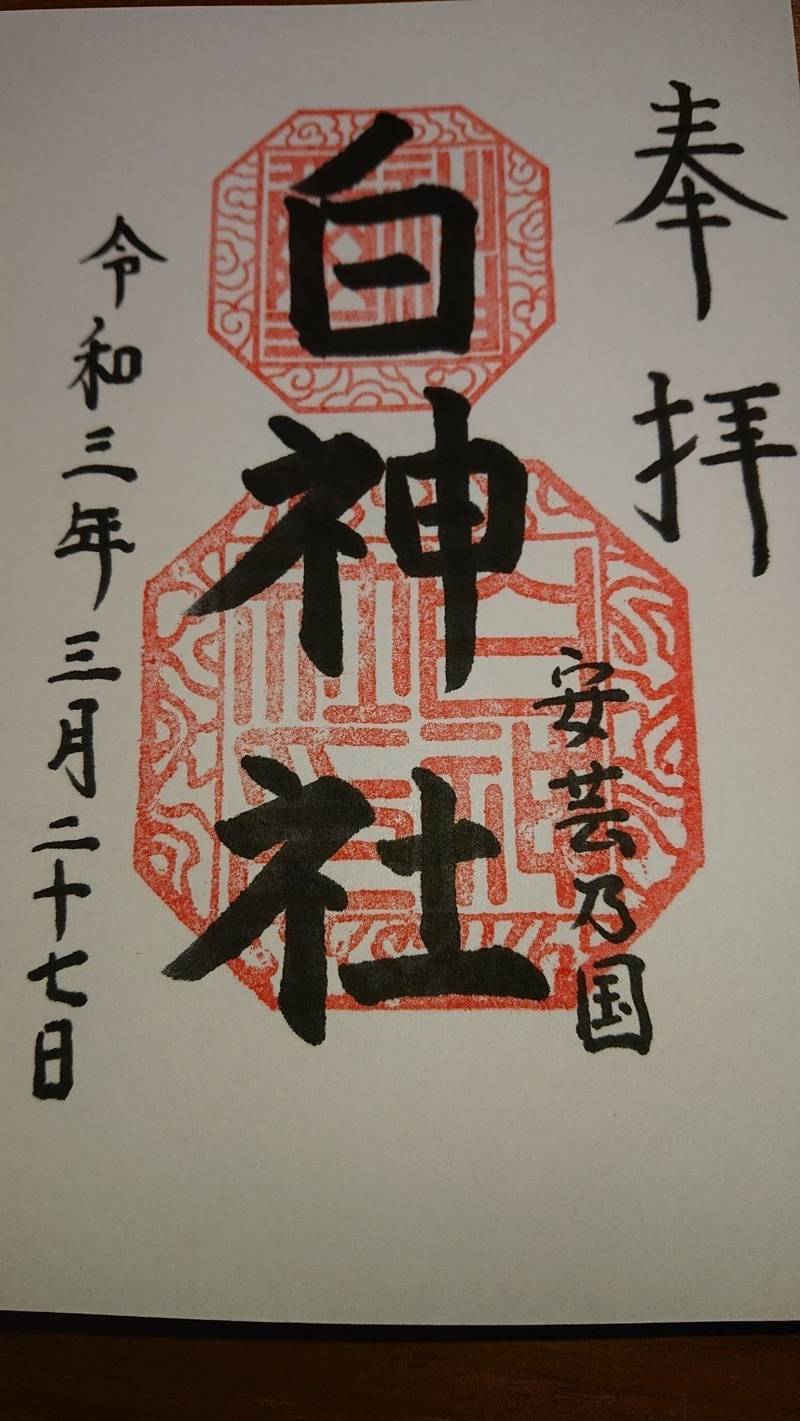 奉拝
安芸乃国
白神社
令和三年三月二十七日